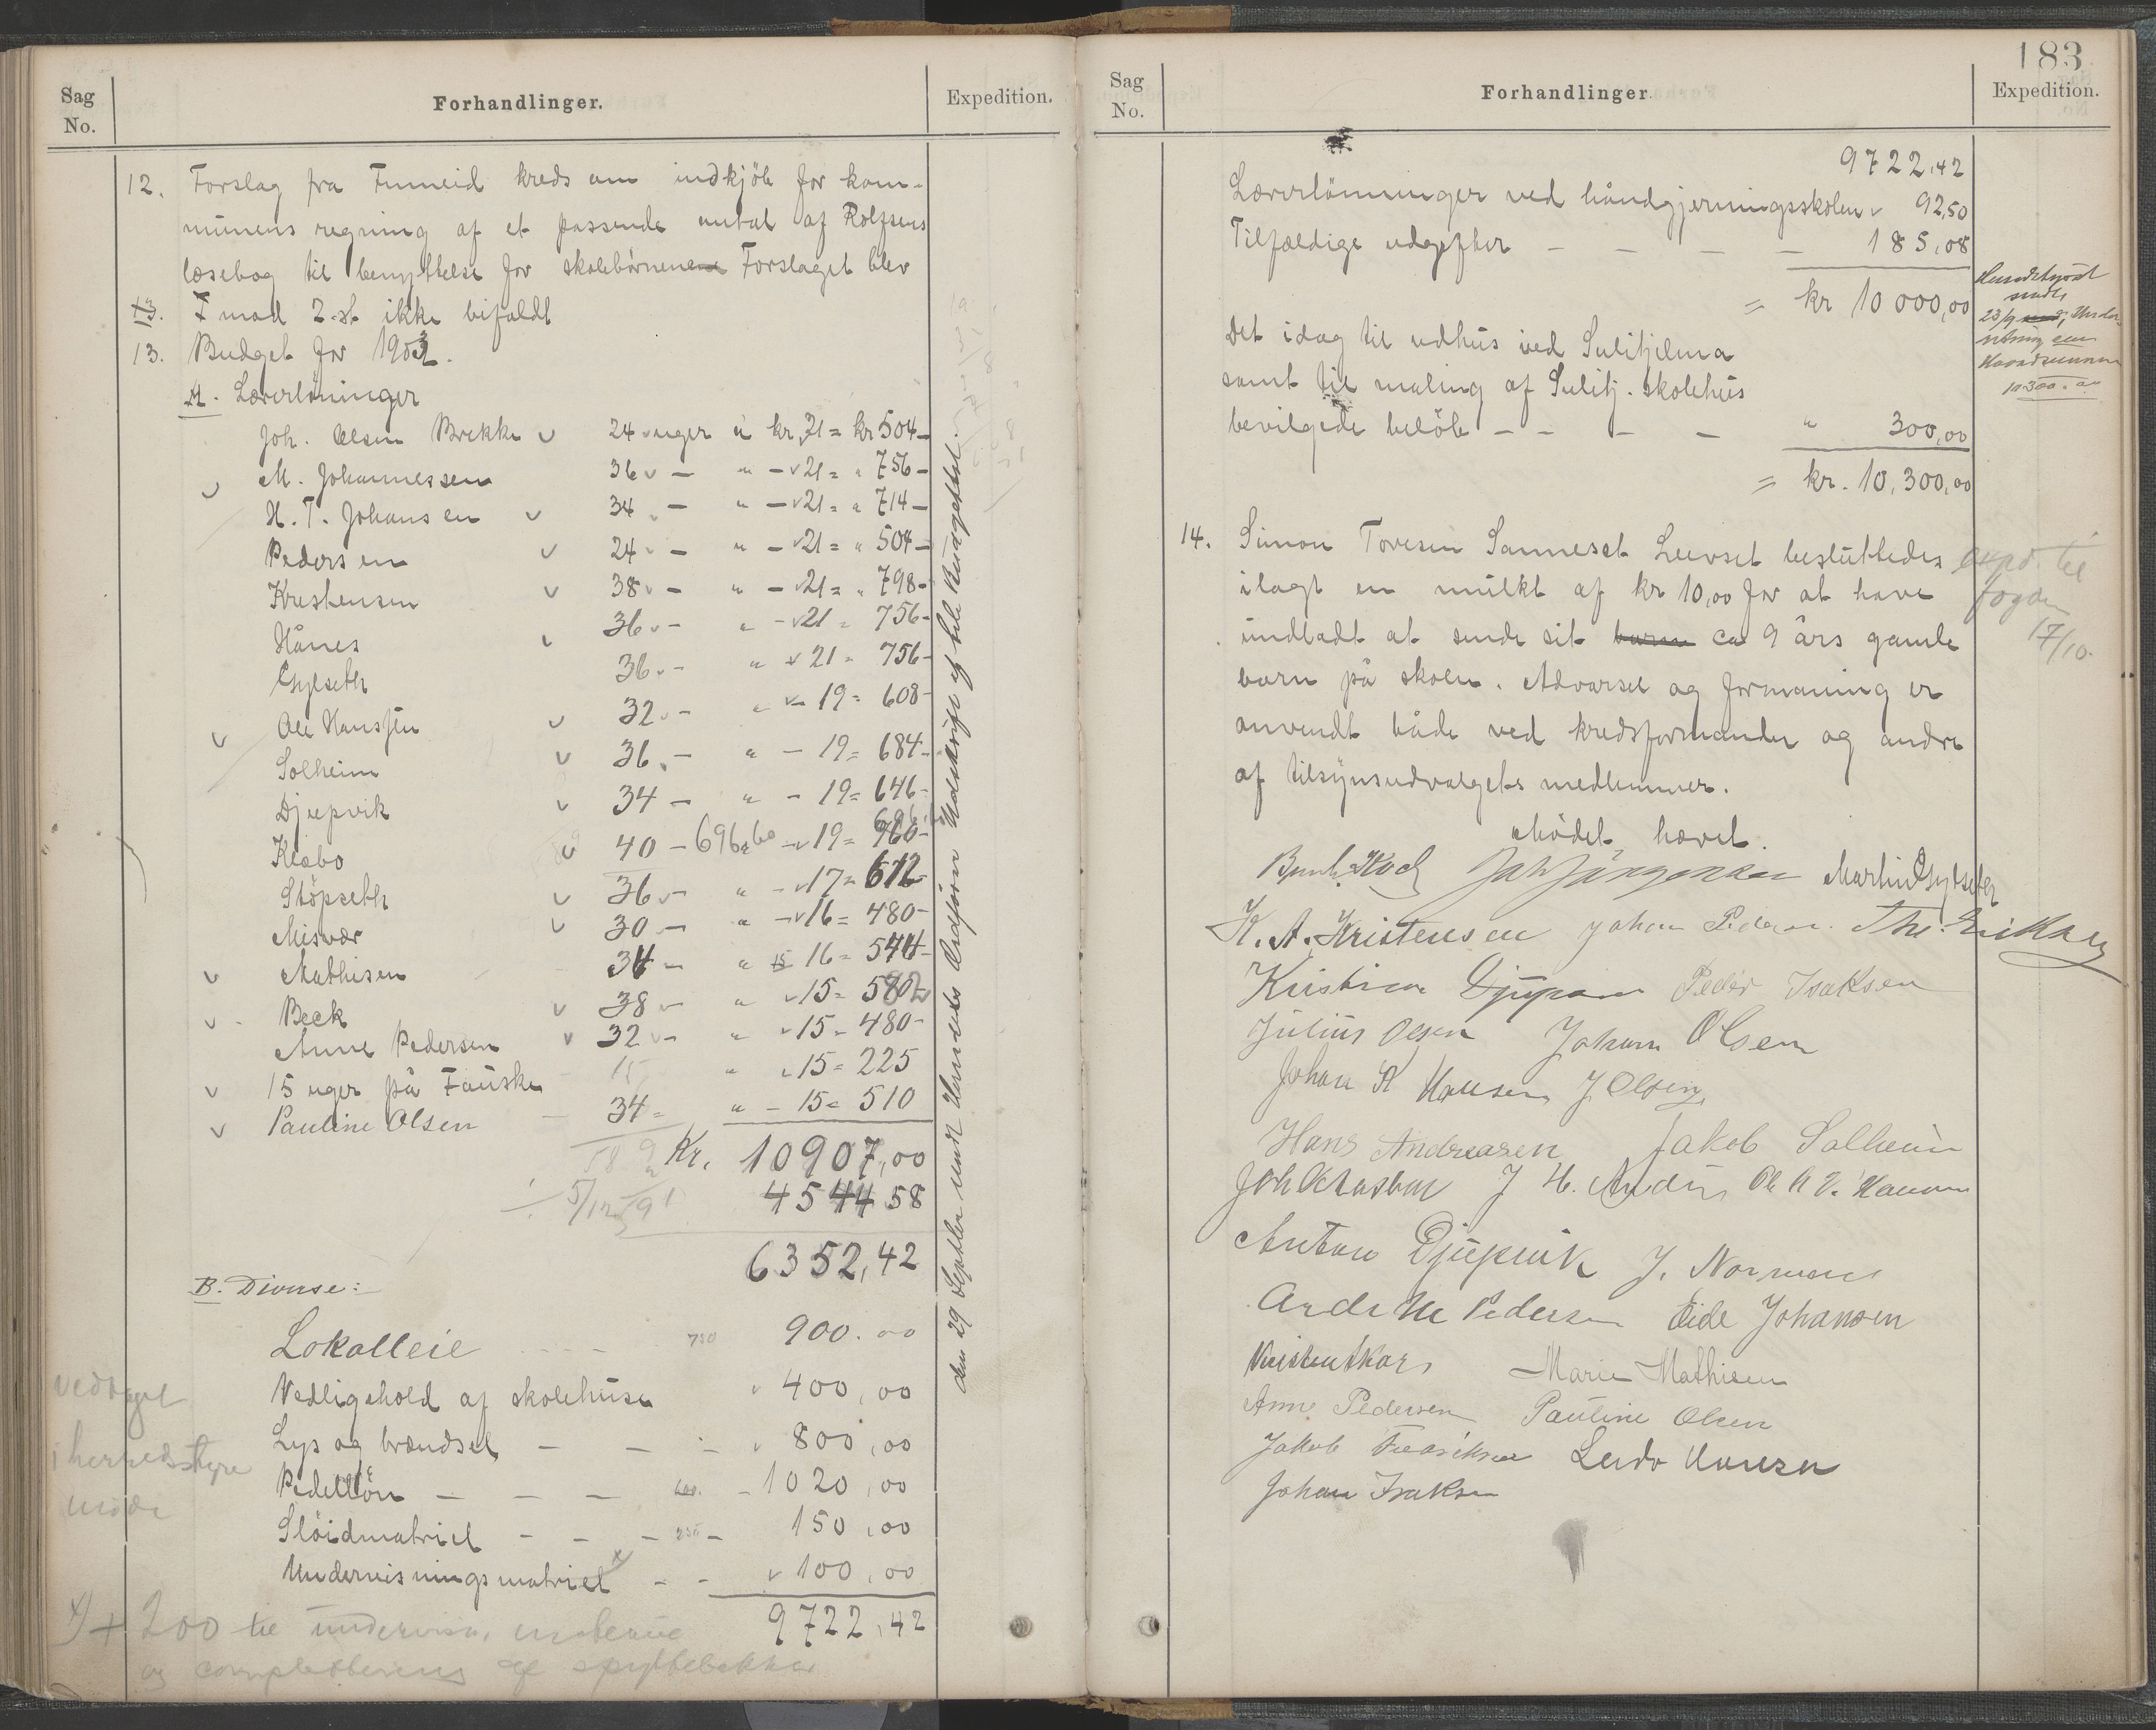 Sag No.
Forhandlinger.
Expedition.
12. Forslag fra Finneid kreds om indkjöb for kom-
munens regning af et passende antal af Rolfsens
læsebog til benyttelse for skolebörnene Forslaget blev
13. 7 mod 2 st. ikke bifaldt
13. Budget for 1903.
A. Lærerlöninger
Joh. Olsen Brekke v 24 uger a kr. 21 = kr 504 -
v M. Johannessen 36 v - " - v 21 = " 756 -
H. T. Johansen v 34 v - " - v 21 = " 714 -
Pedersen v 24 v - " - v 21 = " 504 -
Kristensen v 38 v - " - v 21 = " 798 -
Hånes v 36 v - " - v 21 = 756 -
Gylseth 36 v - " v 21 = 756 -
v Ole Hansen v 32 v - " v - 19 = 608 -
Solheim v 36 v - " - 19 = 684 -
Djupvik v 34 - " - 19 = 646 -
Klæbo v 40 - 696,60 - v 19 = 760 -
Stöpseth v 36 v - " - v 17 = 612 -
Misvær v 30 - " - v 16 = 480 -
v Mathisen 34 - " 15 16 = 544 -
v Beck v 38 v - " v 15 = 580
Anne Pedersen v 32 v - " v 15 = 480 -
v 15 uger på Fauske 15 " v 15 = 225
v Pauline Olsen - 34 = " - 15 = 510
582 Kr. 10907,00
÷ 5/12 4544 58
6352,42
B. Diverse:
Lokalleie - - - - 750 900.00
Vedligehold af skolehuse v 400,00
Lys og brændsel - - - v 800,00
Pedellön - - - 600. - 1020,00
Slöidmatriel - - - 250 - 150,00
Undervisningsmatriel x - - v 100,00
9722,42
vedtaget
i herredsstyre
möde
x) + 200 til undervisn. materiel
og complettering af spyttebakker
den 29 Septbr sendt Herredets Ordförer Udskrift af hele Budgettet.
183
Sag No.
Forhandlinger.
Expedition.
9722,42
Lærerlönninger ved håndgjerningsskolen v 92,50
Tilfældige udgifter - - - - 185,08
= kr 10 000,00
Det idag til udhus ved Sulitjelma
samt til maling af Sulitj. skolehus
bevilgede belöb - - - - " 300,00
= kr. 10,300,00
sendt
23/9 Under-
retning om
10300.00
14. Simon Toresen Sanneset Leivset besluttedes
ilagt en mulkt af kr 10,00 for at have
undladt at sende sit barn ca 9 års gamle
barn på skolen. Advarsel og formaning er
anvendt både ved kredsformanden og andre
af tilsynsudvalgets medlemmer.
expd. til
fogden
17/10.
Mödet hævet.
Bernh. Koch Joh Jörgensen Martin Gylseth
K. A. Kristensen Johan Pedersen. Chr. Eriksen
Kristian Djupvik Peder Isaksen
Julius Olsen Johan Olsen
Johan K Hansen J. Olsen
Hans Andreasen Jakob Solheim
Joh J H. Ole A V. Hansen
Anton Djupvik J. Normann
Pedersen Eide Johansen
Kristen Skar Marie Mathisen
Anne Pedersen Pauline Olsen
Jakob Fredriksen Hansen
Johan Isaksen